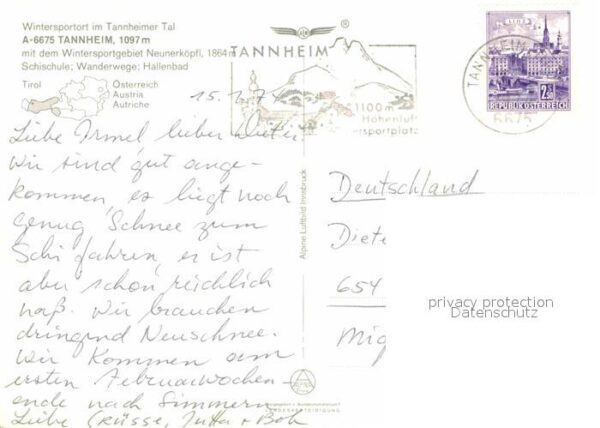 Wintersportort im Tannheimer Tal
A-6675 TANNHEIM, 1097 m
mit dem Wintersportgebiet Neunerköpfl, 1864 m
Schischule; Wanderwege; Hallenbad
Tirol
Österreich
Austria
Autriche
TANNHEIM
1100 m
Höhenluft
ersportplatz
TANNHEIM
6675
LINZ
2.50
REPUBLIK ÖSTERREICH
15.1.7
Liebe Irmel, lieber Dieter
Wir sind gut ange-
kommen, es liegt noch
genug Schnee zum
Schi fahren, er ist
aber schon reichlich
naß. Wir brauchen
dringend Neuschnee.
Wir kommen am
ersten Februarwochen-
ende nach Simmern
Liebe Grüsse, Jutta + Bob
Alpine Luftbild Innsbruck
Deutschland
Diete
654
privacy protection
Datenschutz